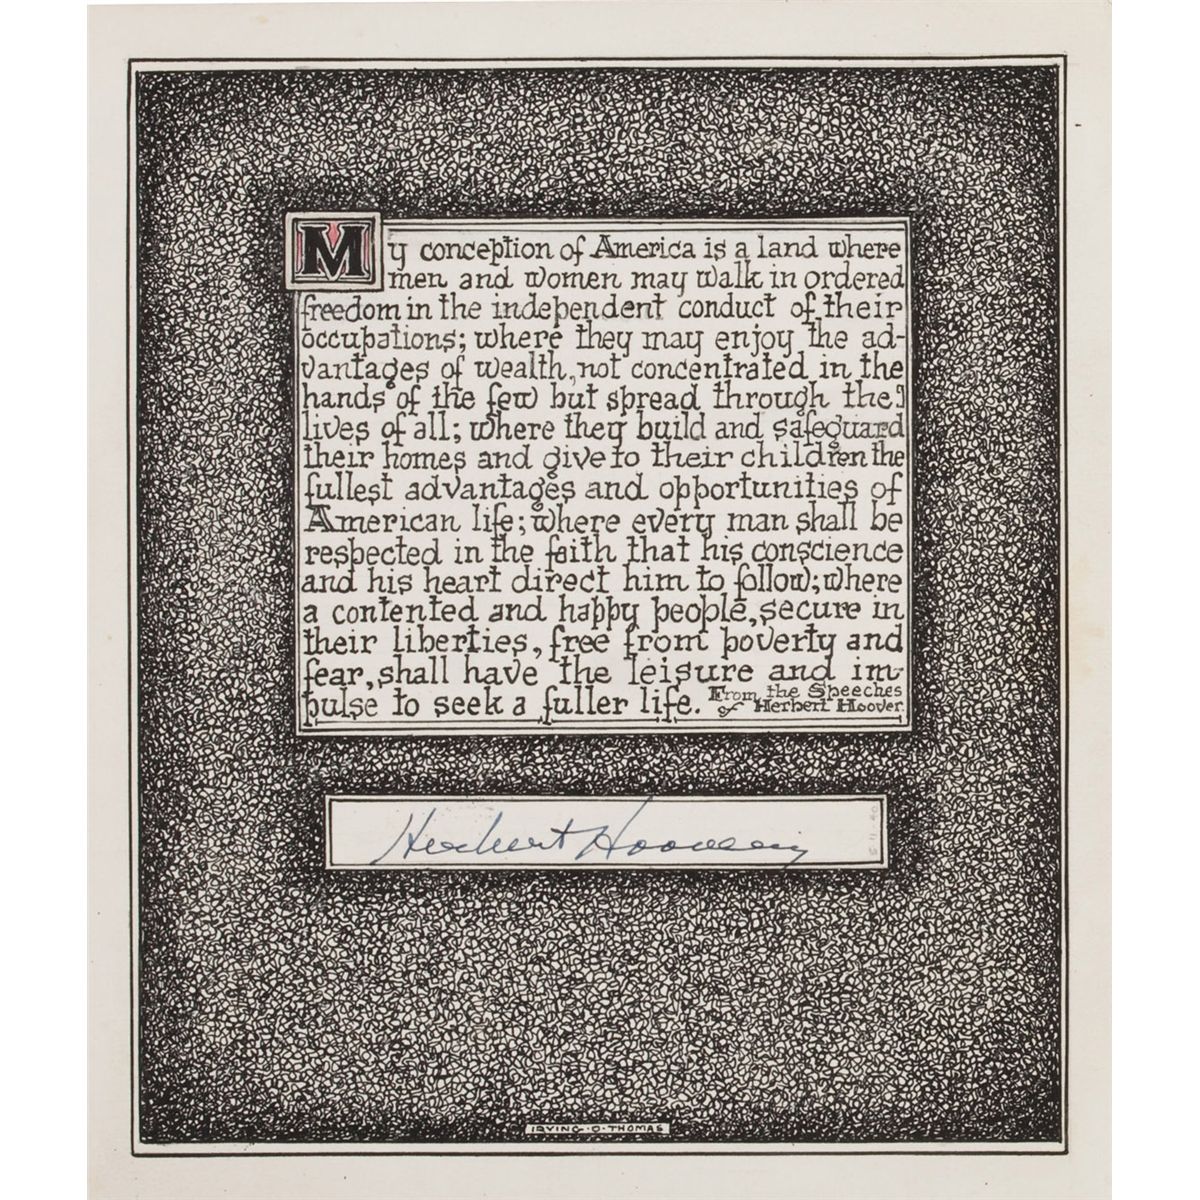 My conception of America is a land where
men and women may walk in ordered
freedom in the independent conduct of their
occupations; where they may enjoy the ad-
vantages of wealth, not concentrated in the
hands of the few but spread through the
lives of all; where they build and safeguard
their homes and give to their children the
fullest advantages and opportunities of
American life; where every man shall be
respected in the faith that his conscience
and his heart direct him to follow; where
a contented and happy people, secure in
their liberties, free from poverty and
fear, shall have the leisure and im-
pulse to seek a fuller life.
From the Speeches
of Herbert Hoover.
Herbert Hoover
IRVING·O·THOMAS